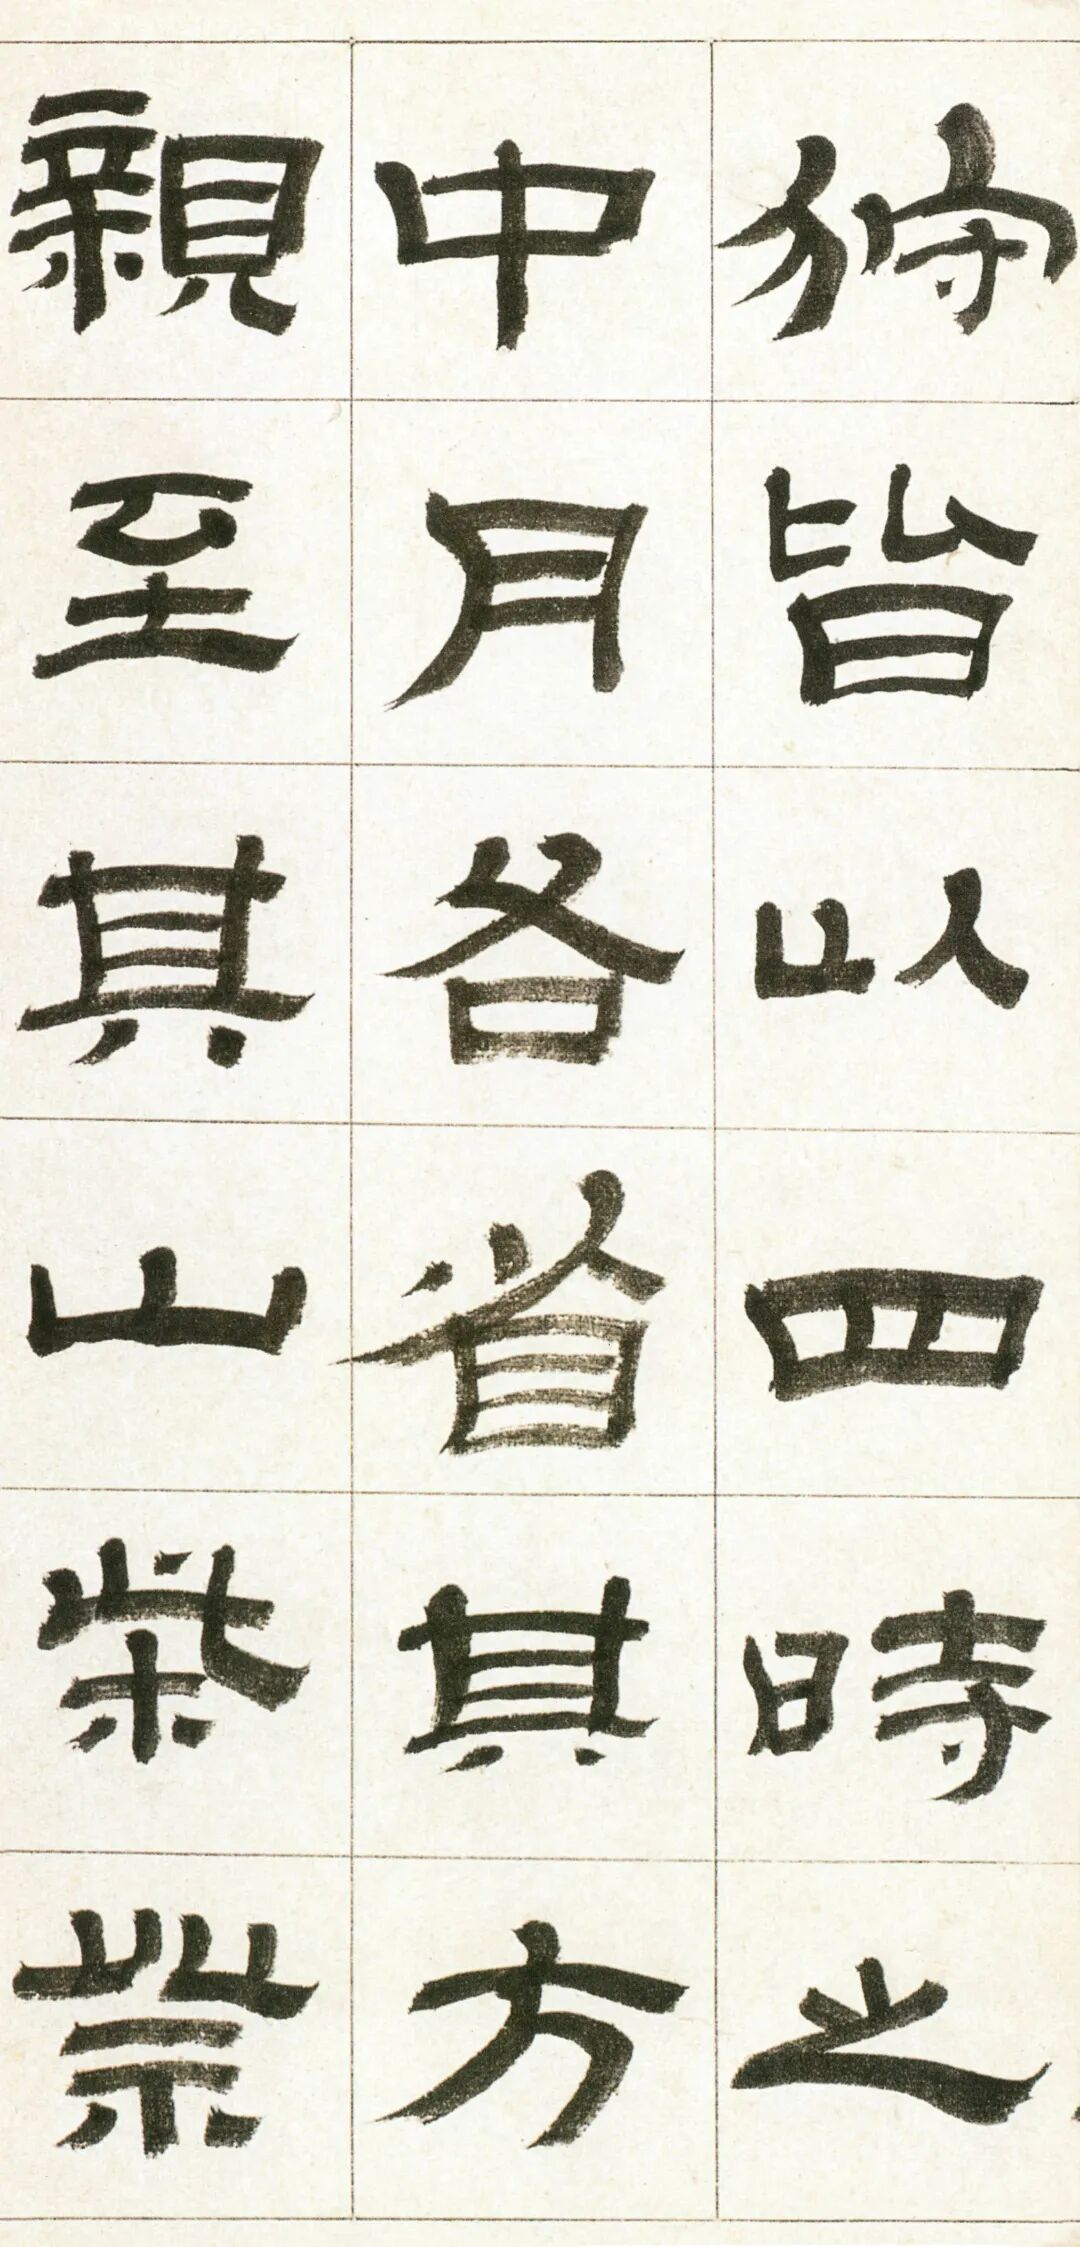 狩皆以四時之
中月各省其方
親至其山柴祭